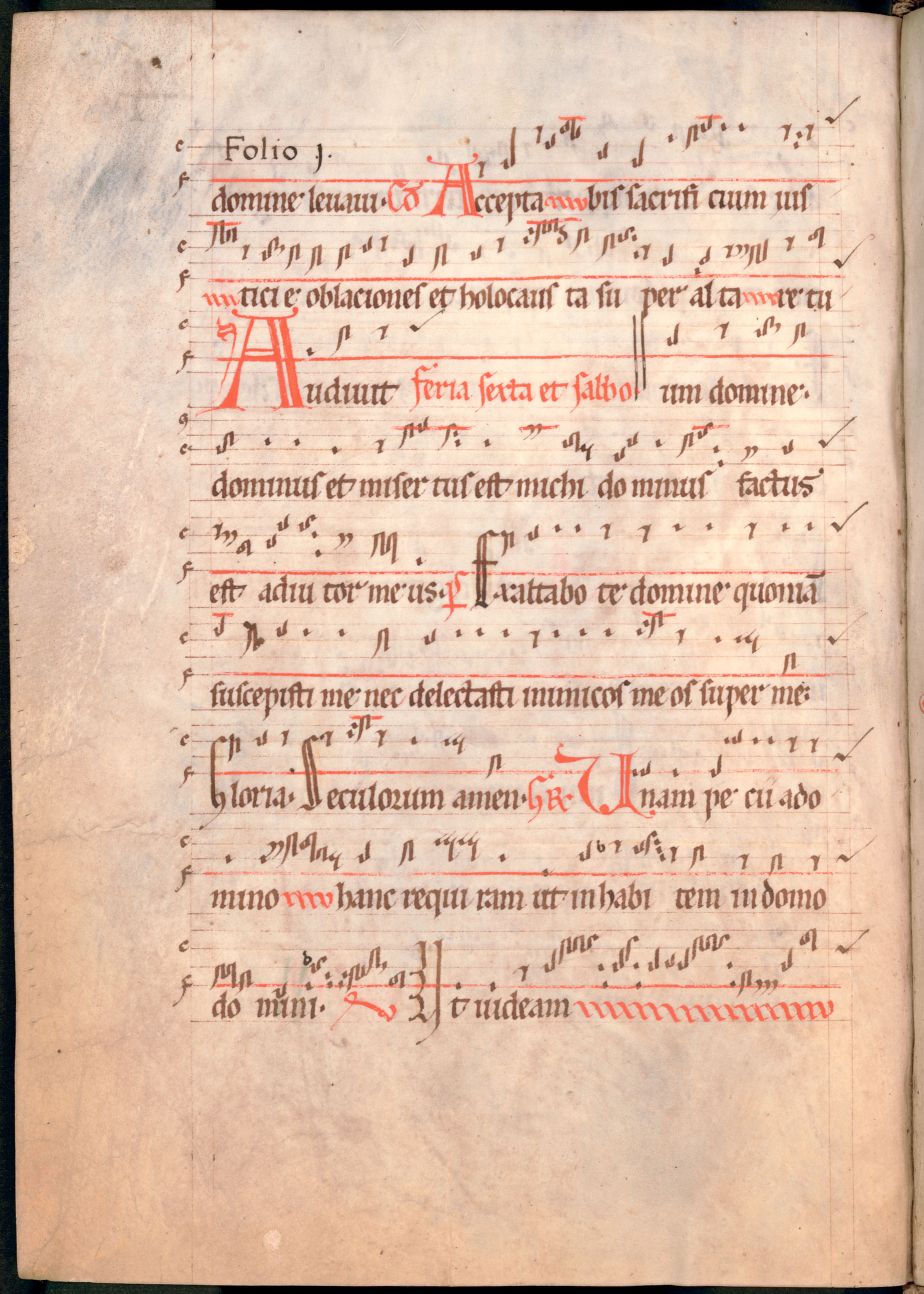 Folio j.
domine levavi. Co Accepta bis sacrifi cium ius
ticie oblaciones et holocaus ta su per al ta re tu
Audivit feria sexta et sabbo um domine.
dominus et miser tus est michi do minus factus
est adiu tor meus. ps Exaltabo te domine quoniā
suscepisti me nec delectasti inimicos meos super me.
Gloria. Seculorum amen. GR Unam pe cii a do
mino hanc requi ram ut inhabi tem in domo
do mini. V Ut videam